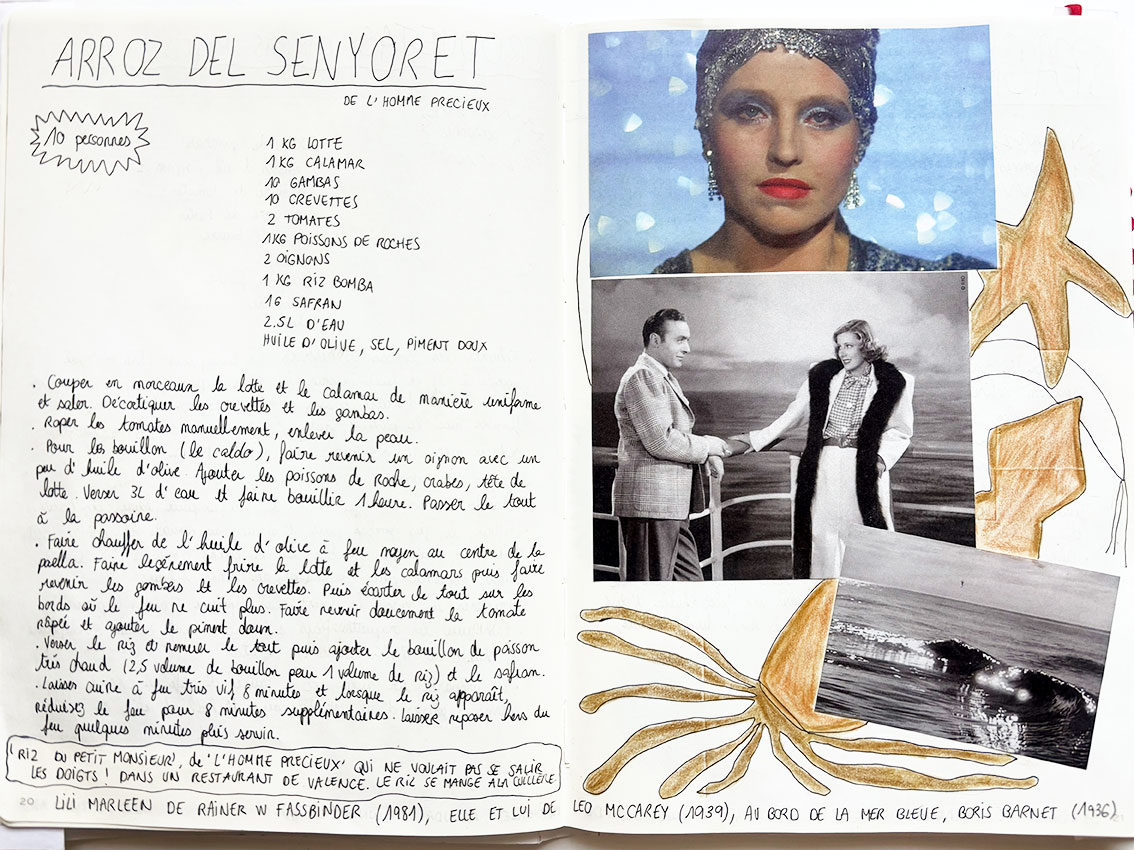 ARROZ DEL SENYORET
DE L'HOMME PRECIEUX
10 personnes
1 KG LOTTE
1 KG CALAMAR
10 GAMBAS
10 CREVETTES
2 TOMATES
1 KG POISSONS DE ROCHES
2 OIGNONS
1 KG RIZ BOMBA
1G SAFRAN
2.5L D'EAU
HUILE D'OLIVE, SEL, PIMENT DOUX
. Couper en morceaux la lotte et le calamar de manière uniforme
et saler. Décortiquer les crevettes et les gambas.
. Raper les tomates manuellement, enlever la peau.
. Pour les bouillon (le caldo), faire revenir un oignon avec un
peu d'huile d'olive. Ajouter les poissons de Roche, crabes, tête de
lotte. Verser 3L d'eau et faire bouillir 1 heure. Passer le tout
à la passoire.
. Faire chauffer de l'huile d'olive à feu moyen au centre de la
paella. Faire légèrement frire la lotte et les calamars puis faire
revenir les gambas et les crevettes. Puis écarter le tout sur les
bords où le feu ne cuit plus. Faire revenir doucement la tomate
râpée et ajouter le piment doux.
. Verser le riz et remuer le tout puis ajouter le bouillon de poisson
très chaud (2,5 volume de bouillon pour 1 volume de riz) et le safran.
. Laisser cuire à feu très vif 8 minutes et lorsque le riz apparaît,
réduisez le feu pour 8 minutes supplémentaires. Laisser reposer hors du
feu quelques minutes puis servir.
'RIZ DU PETIT MONSIEUR', de 'L'HOMME PRECIEUX' QUI NE VOULAIT PAS SE SALIR
LES DOIGTS ! DANS UN RESTAURANT DE VALENCE. LE RIZ SE MANGE A LA CUILLÈRE.
20
LILI MARLEEN DE RAINER W FASSBINDER (1981), ELLE ET LUI DE LEO MCCAREY (1939), AU BORD DE LA MER BLEUE, BORIS BARNET (1936)
21